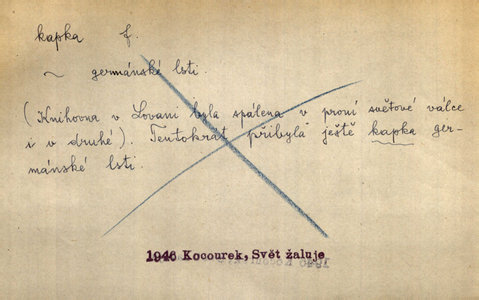 kapka f.
~ germánské lsti.
(Knihovna v Lovani byla spálena v první světové válce
i v druhé). Tentokrát přibyla ještě kapka ger-
mánské lsti.
1946 Kocourek, Svět žaluje